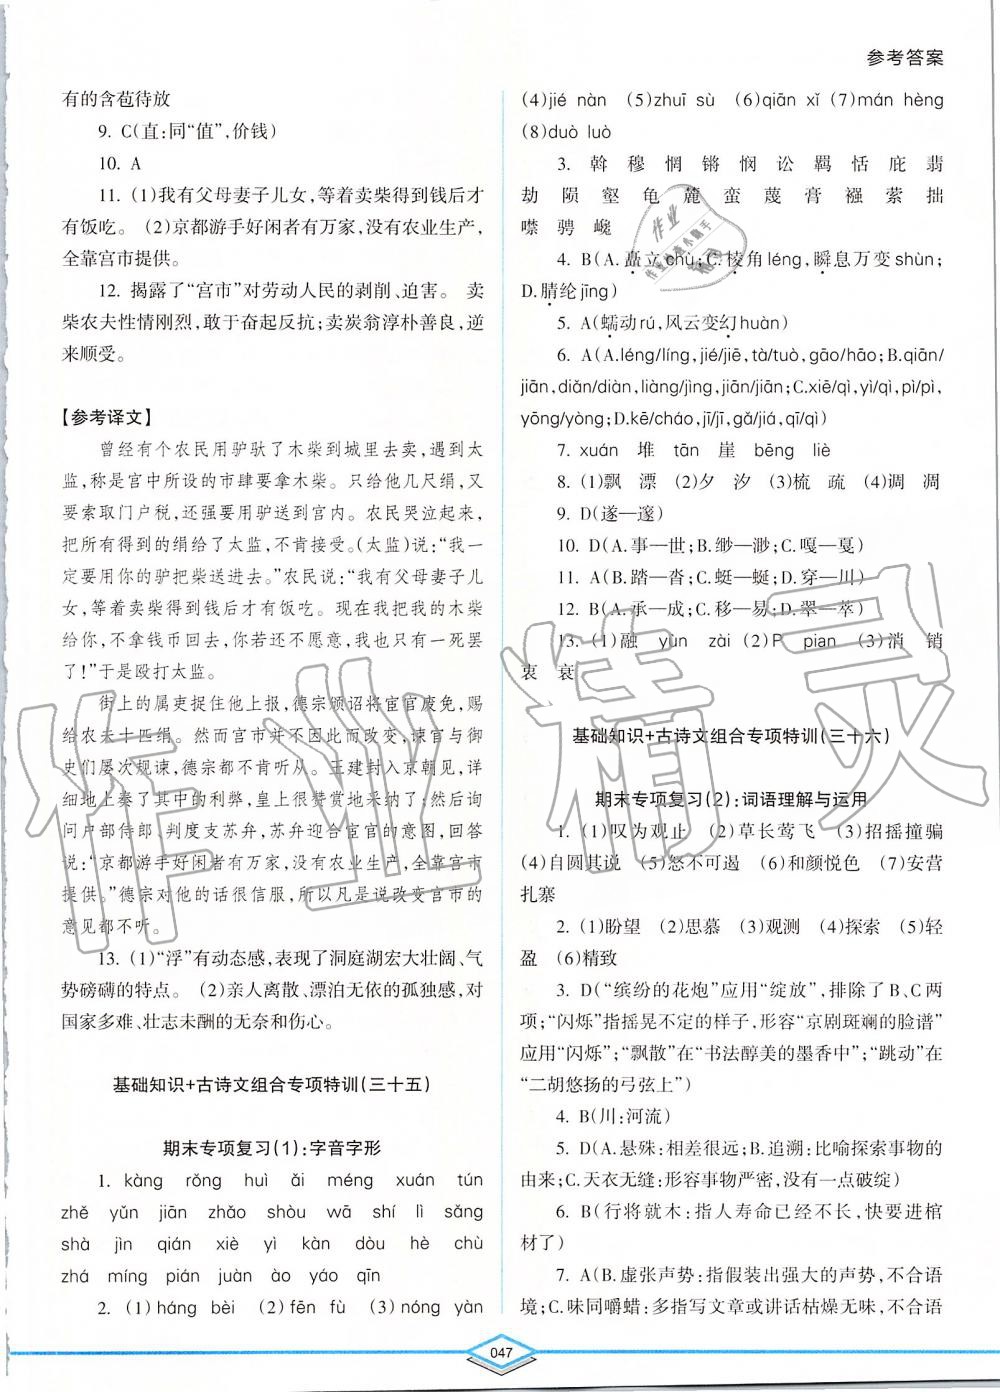 参考答案
有的含苞待放
9. C(直:同“值”,价钱)
10. A
11. (1)我有父母妻子儿女,等着卖柴得到钱后才
有饭吃。 (2)京都游手好闲者有万家,没有农业生产,
全靠宫市提供。
12. 揭露了“宫市”对劳动人民的剥削、迫害。 卖
柴农夫性情刚烈,敢于奋起反抗;卖炭翁淳朴善良,逆
来顺受。
【参考译文】
曾经有个农民用驴驮了木柴到城里去卖,遇到太
监,称是宫中所设的市肆要拿木柴。只给他几尺绢,又
要索取门户税,还强要用驴送到宫内。农民哭泣起来,
把所有得到的绢给了太监,不肯接受。(太监)说:“我一
定要用你的驴把柴送进去。”农民说:“我有父母妻子儿
女,等着卖柴得到钱后才有饭吃。现在我把我的木柴
给你,不拿钱币回去,你若还不愿意,我也只有一死罢
了!”于是殴打太监。
街上的属吏捉住他上报,德宗颁诏将宦官废免,赐
给农夫十匹绢。然而宫市并不因此而改变,谏官与御
史们屡次规谏,德宗都不肯听从。王建封入京朝见,详
细地上奏了其中的利弊,皇上很赞赏地采纳了;然后询
问户部侍郎、判度支苏弁,苏弁迎合宦官的意图,回答
说:“京都游手好闲者有万家,没有农业生产,全靠宫市
提供。”德宗对他的话很信服,所以凡是说改变宫市的
意见都不听。
13. (1)“浮”有动态感,表现了洞庭湖宏大壮阔、气
势磅礴的特点。 (2)亲人离散、漂泊无依的孤独感,对
国家多难、壮志未酬的无奈和伤心。
基础知识+古诗文组合专项特训(三十五)
期末专项复习(1):字音字形
1. kàng rǒng huì ǎi méng xuán tún
zhě yǔn jiān zhǎo shòu wā shí lì sǎng
shà jìn qián xiè yì kàn dòu hè chù
zhá míng pián juàn ào yáo qīn
2. (1)háng bèi (2)fēn fù (3)nóng yàn
(4)jié nàn (5)zhuī sù (6)qiān xǐ (7)mán hèng
(8)duò luò
3. 斡 穆 惘 锵 悯 讼 羁 恬 庇 翡
劫 陨 壑 龟 麓 蛮 蔑 膏 襁 萦 拙
噤 骋 巉
4. B(A.矗立chù;C.棱角léng,瞬息万变shùn;
D.腈纶jīng)
5. A(蠕动rú,风云变幻huàn)
6. A(A.léng/líng,jié/jiē,tà/tuò,gāo/hāo;B.qiān/
jiān,diǎn/diàn,liàng/jìng,jiān/jiān;C.xiē/qì,yì/qì,pì/pì,
yōng/yòng;D.kē/cháo,jī/jī,gǎ/jiá,qī/qì)
7. xuán 堆 tān 崖 bēng liè
8. (1)飘 漂 (2)夕 汐 (3)梳 疏 (4)调 凋
9. D(遂—邃)
10. D(A.事—世;B.缈—渺;C.嘎—戛)
11. A(B.踏—沓;C.蜓—蜒;D.穿—川)
12. B(A.承—成;C.移—易;D.翠—萃)
13. (1)融 yùn zài (2)P pian (3)消 销
衷 衰
基础知识+古诗文组合专项特训(三十六)
期末专项复习(2):词语理解与运用
1. (1)叹为观止 (2)草长莺飞 (3)招摇撞骗
(4)自圆其说 (5)怒不可遏 (6)和颜悦色 (7)安营
扎寨
2. (1)盼望 (2)思慕 (3)观测 (4)探索 (5)轻
盈 (6)精致
3. D(“缤纷的花炮”应用“绽放”,排除了B、C两
项;“闪烁”指摇晃不定的样子,形容“京剧斑斓的脸谱”
应用“闪烁”;“飘散”在“书法醇美的墨香中”;“跳动”在
“二胡悠扬的弓弦上”)
4. B(川:河流)
5. D(A.悬殊:相差很远;B.追溯:比喻探索事物的
由来;C.天衣无缝:形容事物严密,没有一点破绽)
6. B(行将就木:指人寿命已经不长,快要进棺
材了)
7. A(B.虚张声势:指假装出强大的声势,不合语
境;C.味同嚼蜡:多指写文章或讲话枯燥无味,不合语
047
作业精灵